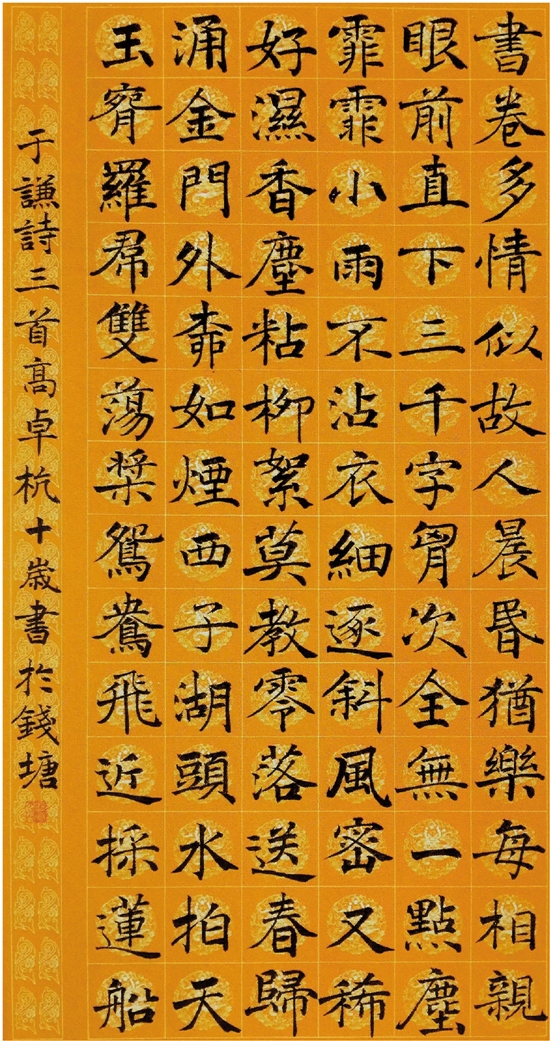 書卷多情似故人晨昬猶樂每相親
眼前直下三千字胷次全無一點塵
霏霏小雨不沾衣細逐斜風密又稀
好濕香塵粘柳絮莫教零落送春歸
涌金門外柹如煙西子湖頭水拍天
玉窗羅帬雙蕩槳鴛鴦飛近採蓮船
于謙詩三首高卓杭十歲書於錢塘